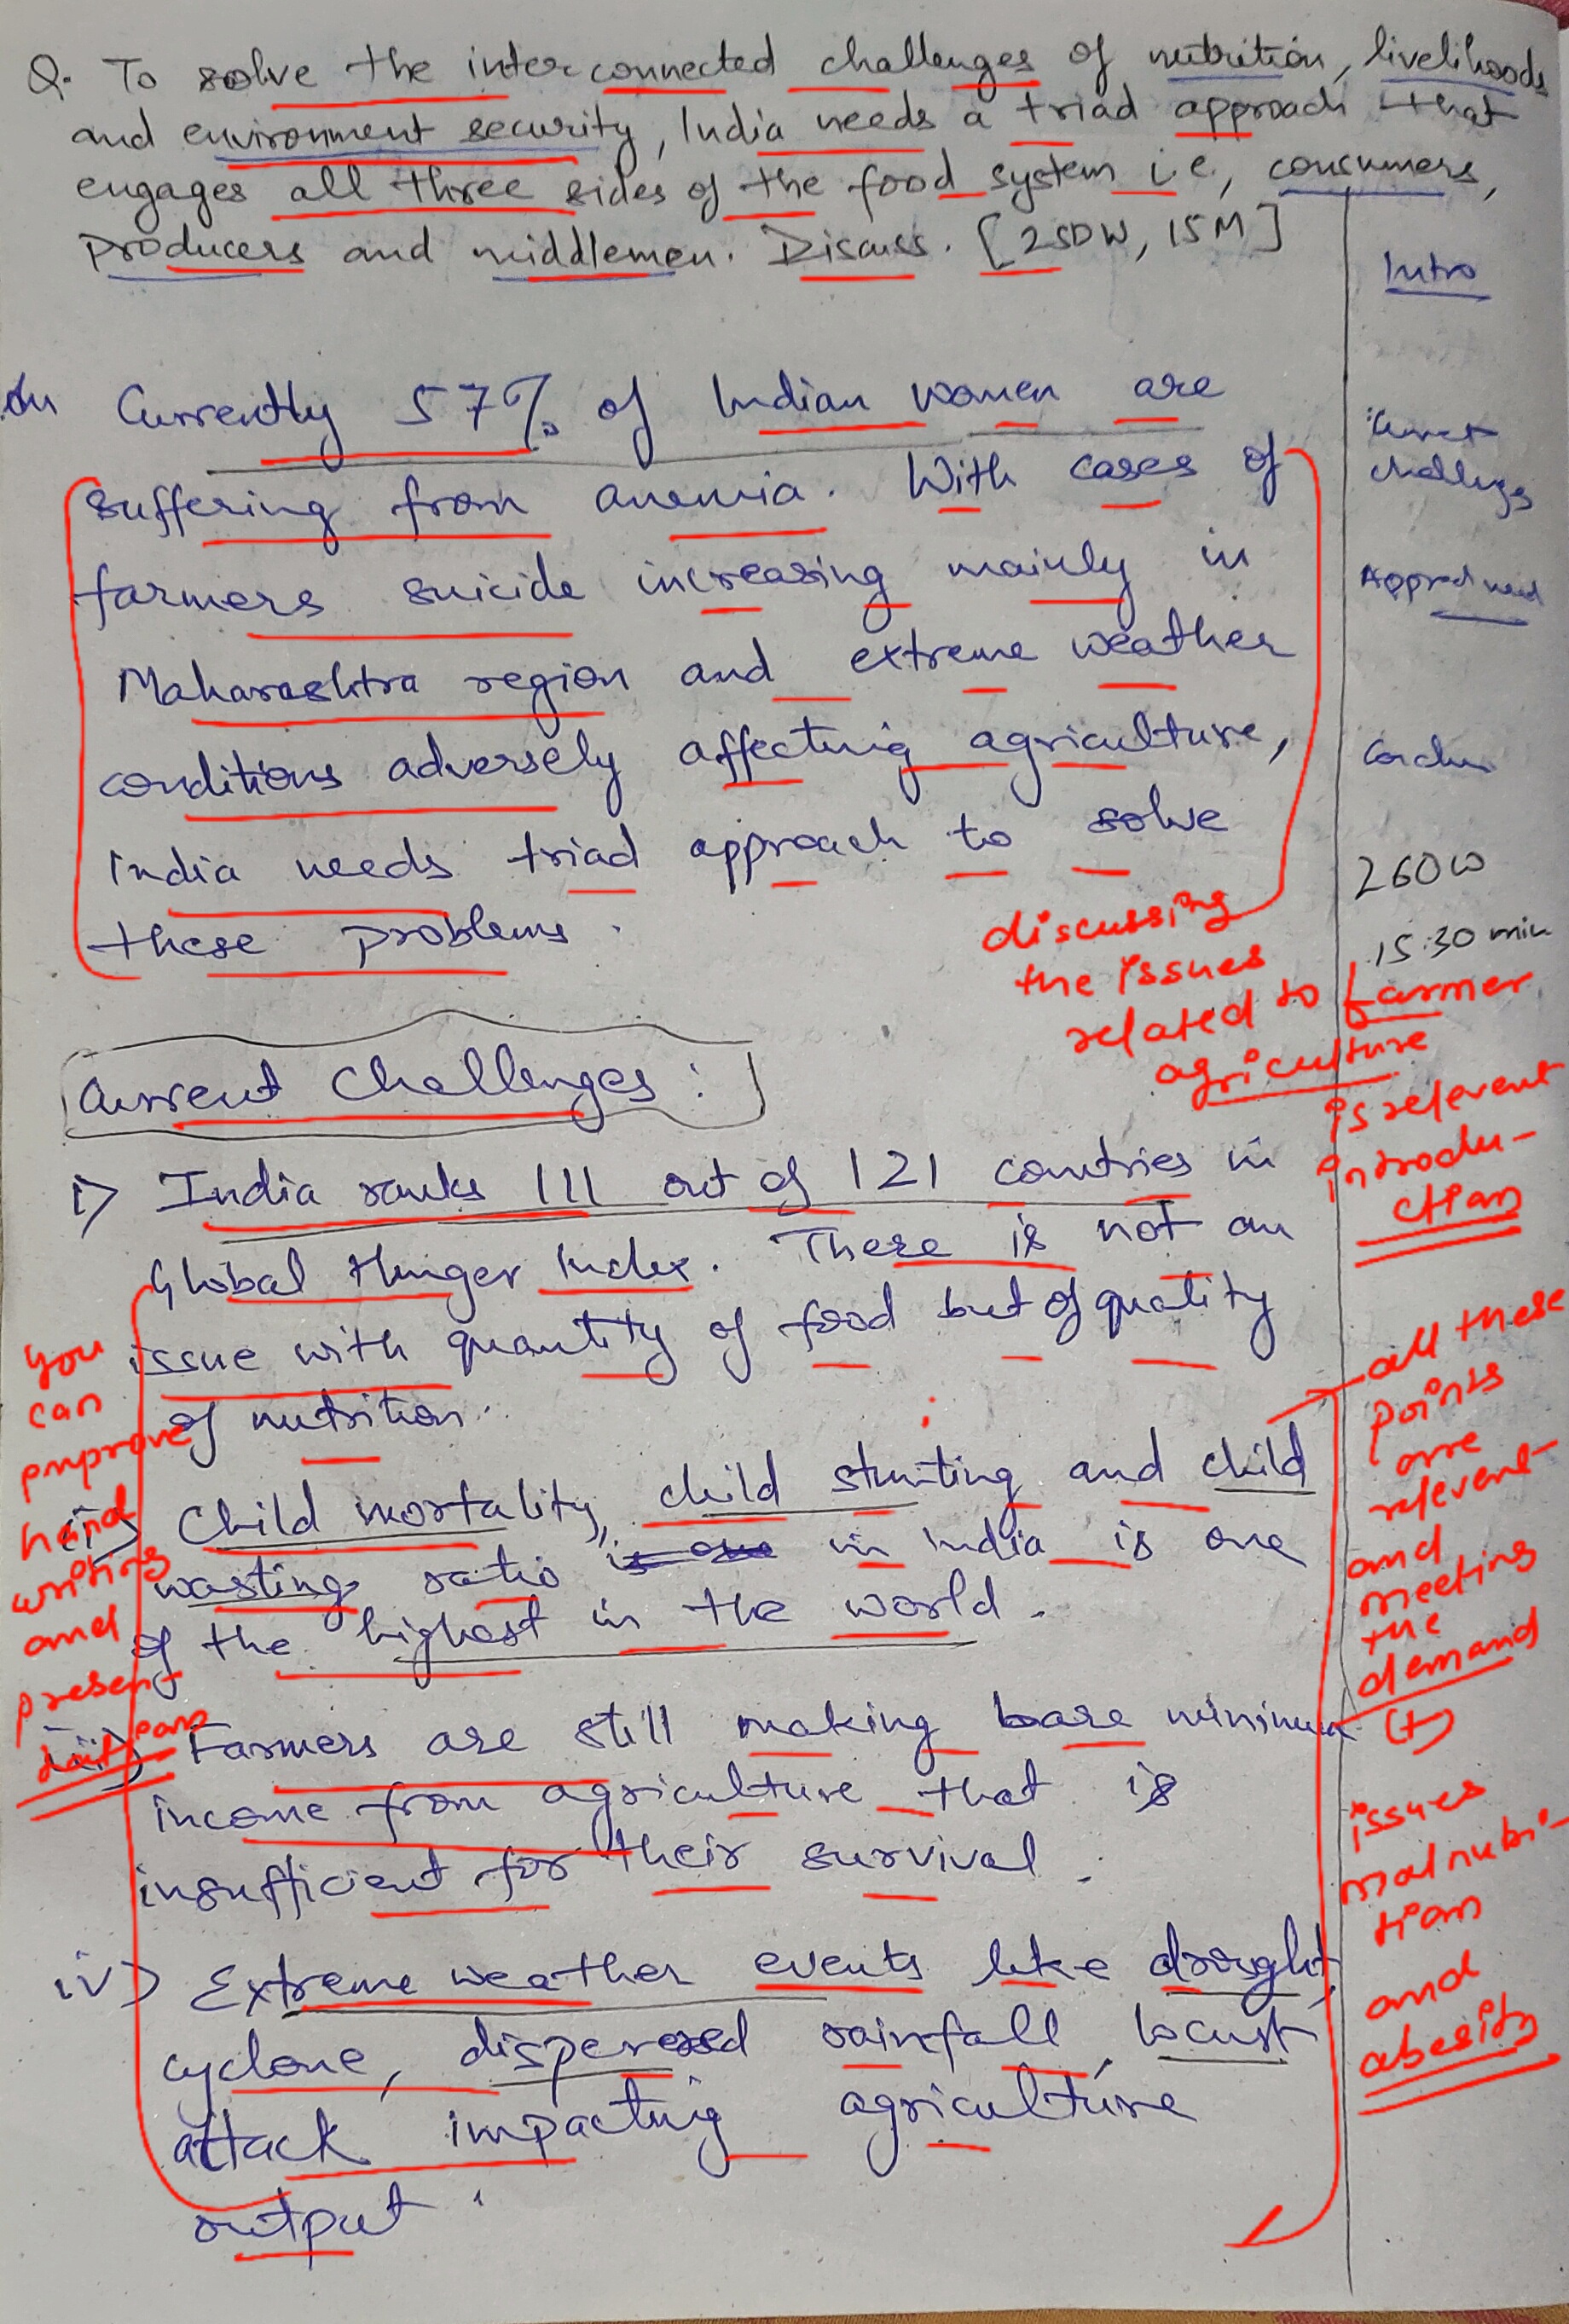 Q. To solve the interconnected challenges of nutrition, livelihoods
and environment security, India needs a triad approach that
engages all three sides of the food system i.e., consumers,
producers and middlemen. Discuss. [250W, 15M]
Intro
Current
challenges
Approach need
260W
15:30 min
Currently 57% of Indian women are
suffering from anemia. With cases of
farmers suicide increasing mainly in
Maharashtra region and extreme weather
conditions adversely affecting agriculture,
india needs triad approach to solve
these problems.
discussing
the issues
related to farmer
agriculture
is relevent
introdu-
ction
Current Challenges:
i) India ranks 111 out of 121 countries in
Global Hunger Index. There is not an
issue with quantity of food but of quality
of nutrition.
ii) Child mortality, child stunting and child
wasting ratio in india is one
of the highest in the world.
iii) Farmers are still making bare minimum
income from agriculture that is
insufficient for their survival.
iv) Extreme weather events like drought,
cyclone, dispersed rainfall, locust
attack impacting agriculture
output.
you
can
improve
hand
writing
and
present
tation
all these
points
are
relevent
and
meeting
the
demand
(+)
issues
malnutri-
tion
and
abesity